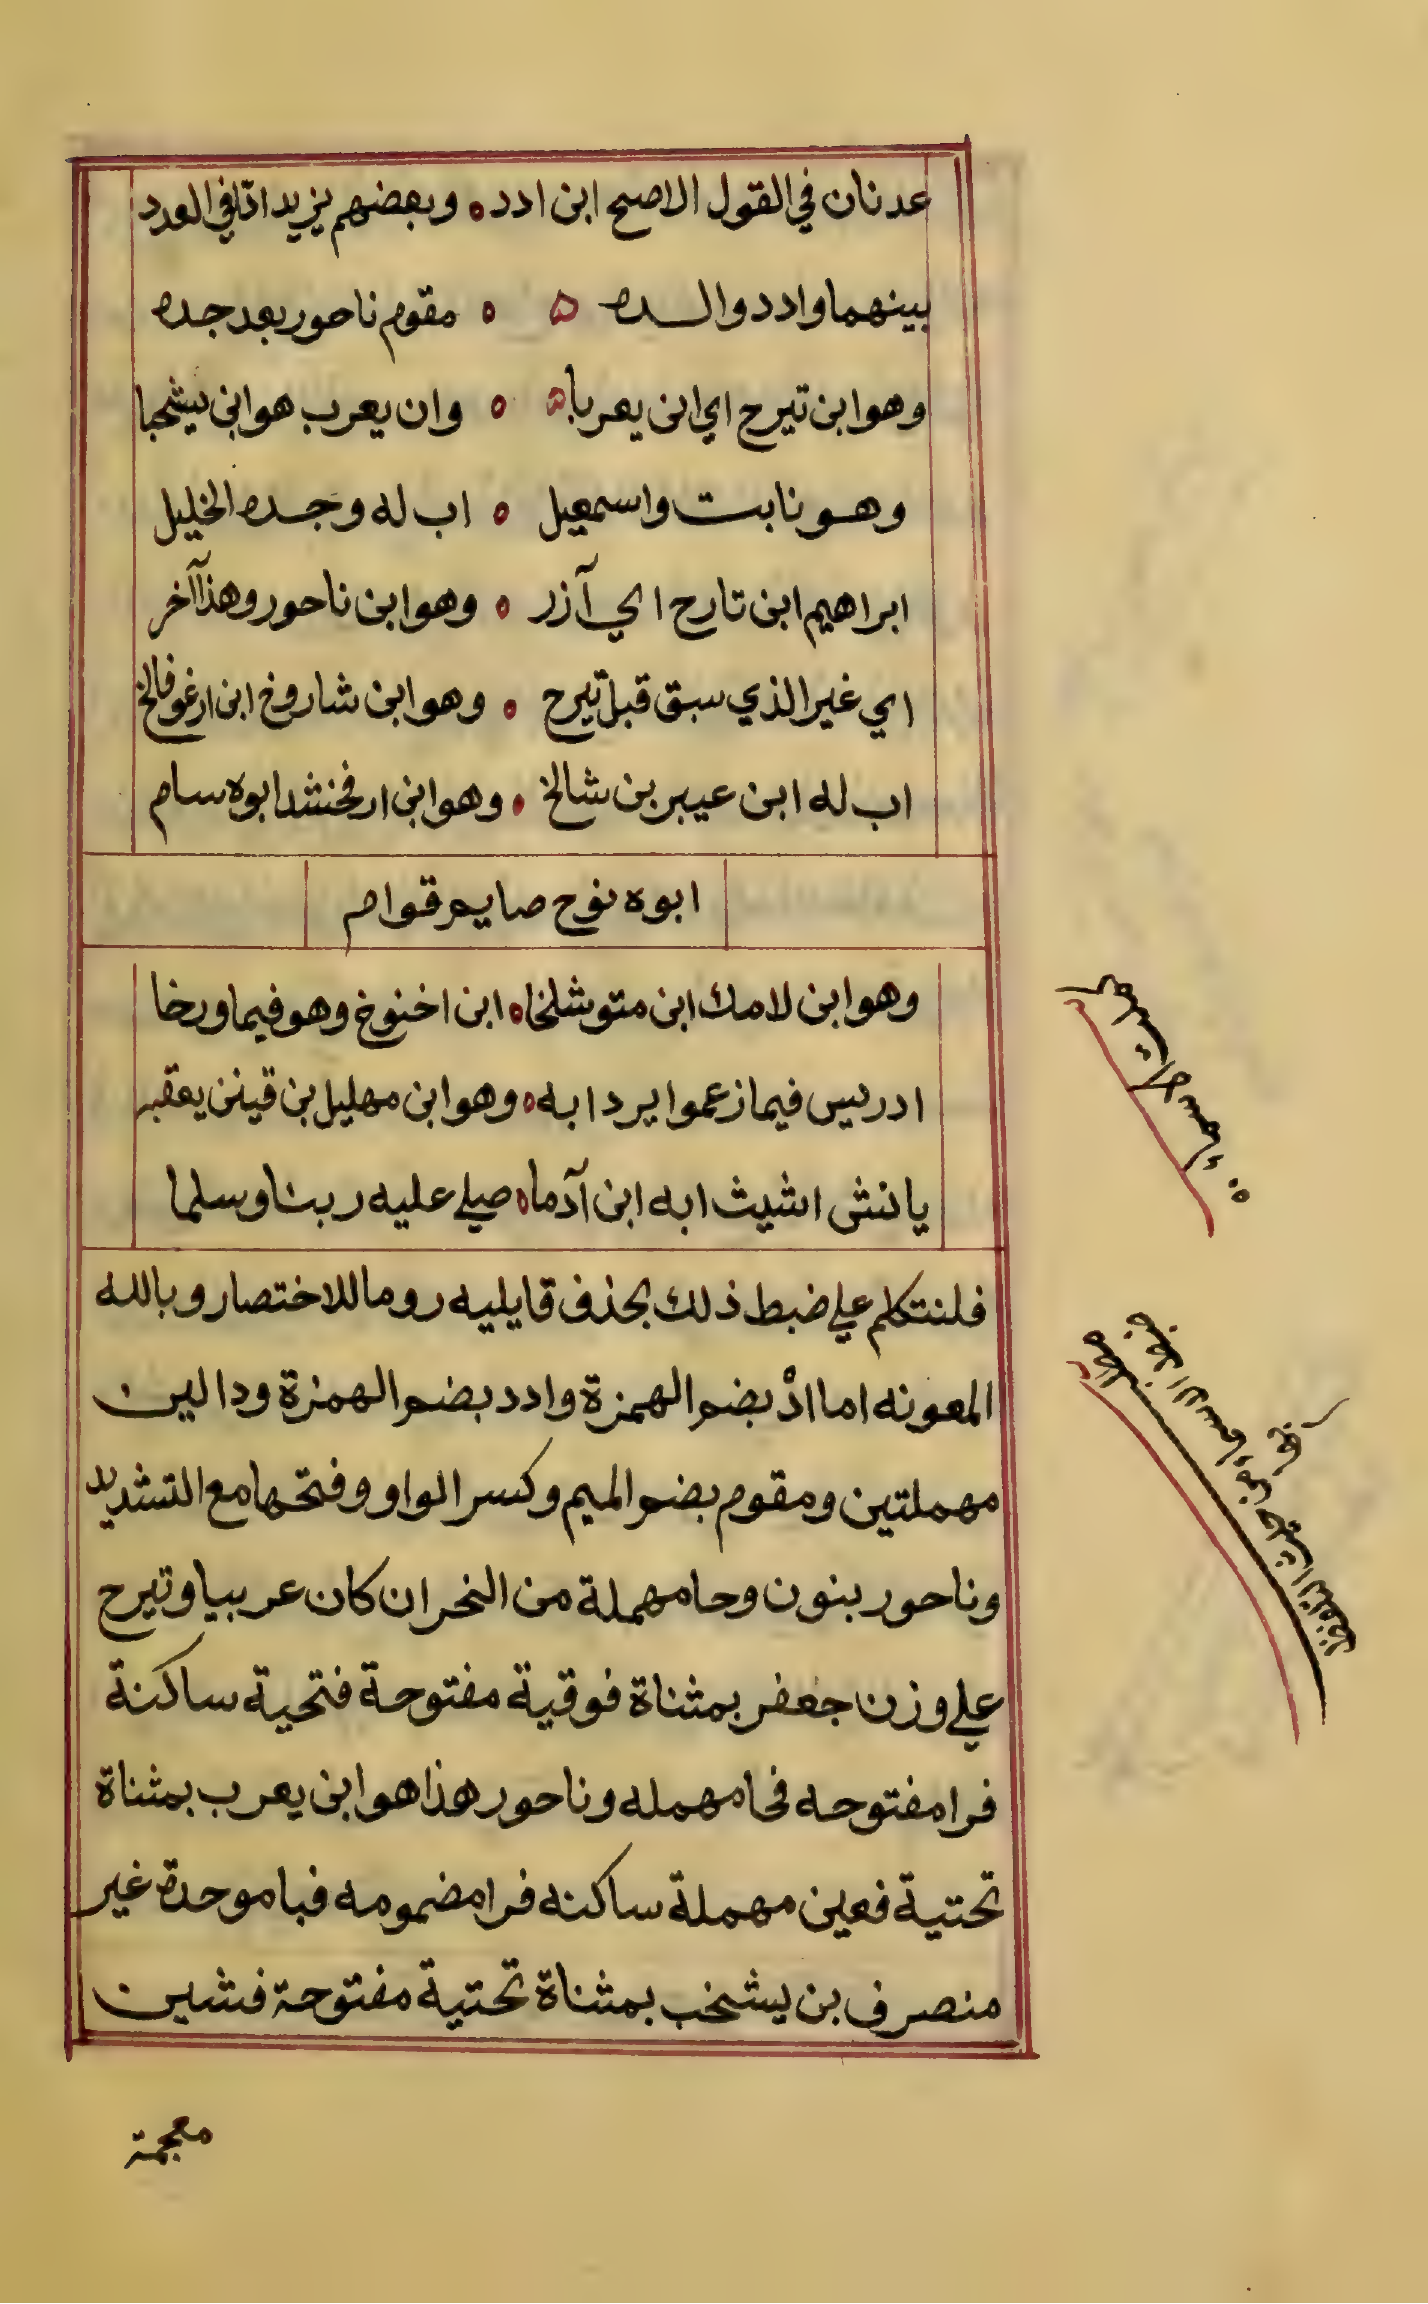 عدنان في القول الاصح ابن ادد ه وبعضهم يزيد ادّا في العدد
بينهما وادد والـــده ه ه مقوم ناحور بعد جده
وهو ابن تيرح اي ابن يعربا ه ه وان يعرب هو ابن يشحبا
وهـو نابـت واسمعيل ه اب له وجـده الخليل
ابراهيم ابن تارح اي آزر ه وهو ابن ناحور وهذا آخر
اي غير الذي سبق قبل تيرح ه وهو ابن شاروخ ابن ارغو فالخ
اب له ابن عيبر بن شالخ ه وهو ابن ارفخشد ابوه سام
ابوه نوح صايم قوام
وهو ابن لامك ابن متوشلخا ه ابن اخنوخ وهو فيما ورخا
ادريس فيما زعموا يرد ابه ه وهو ابن مهليل بن قينن يعقبه
يانش اشيث ابه ابن آدما ه صلي عليه ربنا وسلما
فلنتكلم علي ضبط ذلك بحذف قايليه روما للاختصار وبالله
المعونه اما ادْ بضم الهمزة وادد بضم الهمزة ودالين
مهملتين ومقوم بضم الميم وكسر الواو وفتحها مع التشديد
وناحور بنون وحا مهملة من النحر ان كان عربيا وتيرح
علي وزن جعفر بمثناة فوقية مفتوحة فتحية ساكنة
فرا مفتوحه فحا مهمله وناحور هذا هو ابن يعرب بمثناة
تحتية فعين مهملة ساكنه فرا مضمومه فبا موحدة غير
منصرف بن يشخب بمثناة تحتية مفتوحة فشين
معجمة
الاسماء
مطلب
ضبط الاسماء من حيث التلفظ
بها